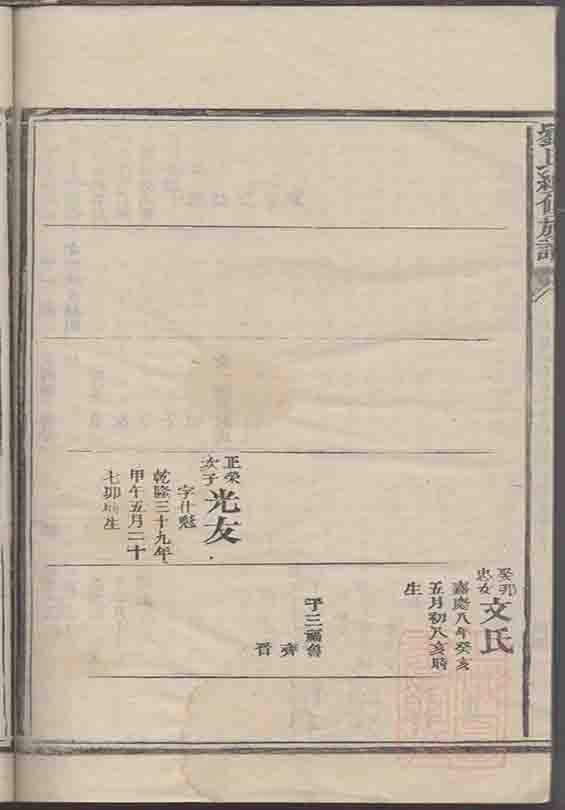 劉氏續修族譜
正榮
次子
光友
字仕魁
乾隆三十九年
甲午五月二十
七卯時生
癸卯
忠女
文氏
嘉慶八年癸亥
五月初八亥時
生
子三福魯
齊
晋